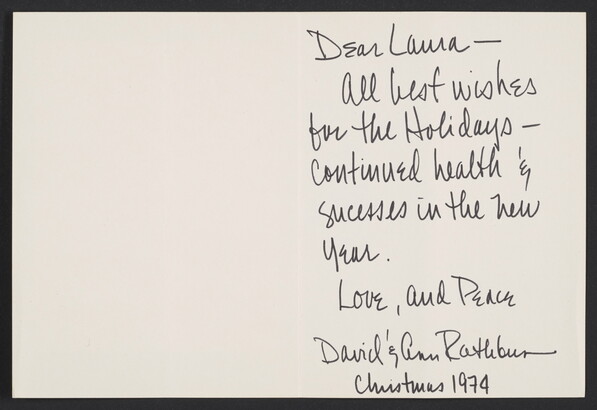 Dear Laura —
All best wishes
for the Holidays —
continued health &
sucesses in the new
year.
Love, and Peace
David & Ann Rathbun
Christmas 1974